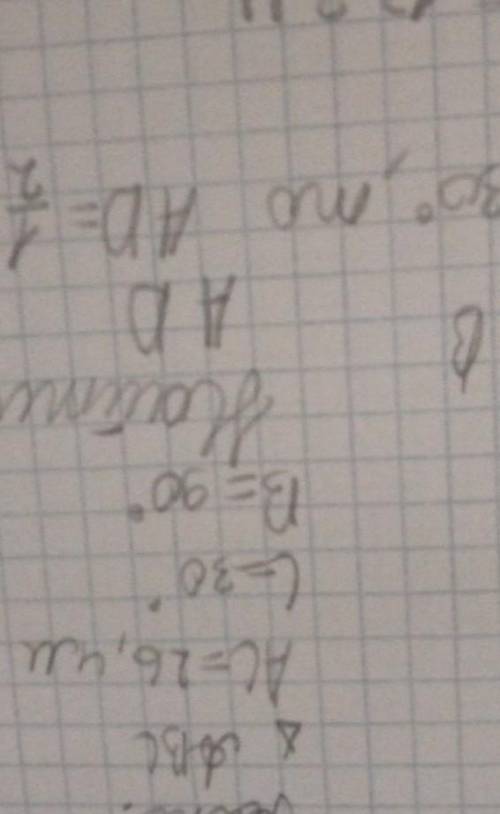 △ ABC
AC=26,4м
C=30°
B=90°
Найти
AD
30°, то AD=1/2